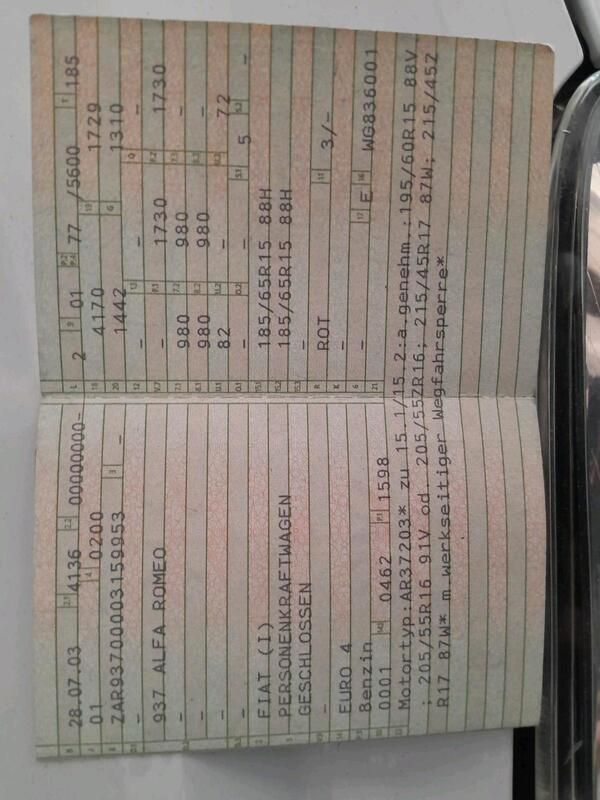 B 28.07.03 2.1 4136 2.2 00000000-
J 01 4 0200
E ZAR93700003159953 3 -
D.1 -
937 ALFA ROMEO
D.2 -
-
D.3 -
2 FIAT (I)
5 PERSONENKRAFTWAGEN
GESCHLOSSEN
V.9 -
14 EURO 4
P.3 Benzin
10 0001 14.1 0462 P.1 1598
L 2 9 01 P.2 P.4 77 /5600 T 185
18 4170 19 1729
20 1442 G 1310
12 - 13 - Q -
V.7 - F.1 1730 F.2 1730
7.1 980 7.2 980 7.3 -
8.1 980 8.2 980 8.3 -
U.1 82 U.2 - U.3 72
O.1 - O.2 - S.1 5 S.2 -
15.1 185/65R15 88H
15.2 185/65R15 88H
15.3 -
R ROT 11 3/-
K -
6 - 17 E 16 WG836001
21
22 Motortyp:AR37203* zu 15.1/15.2:a.genehm.:195/60R15 88V
; 205/55R16 91V od. 205/55ZR16; 215/45R17 87W; 215/45Z
R17 87W* m.werkseitiger Wegfahrsperre*